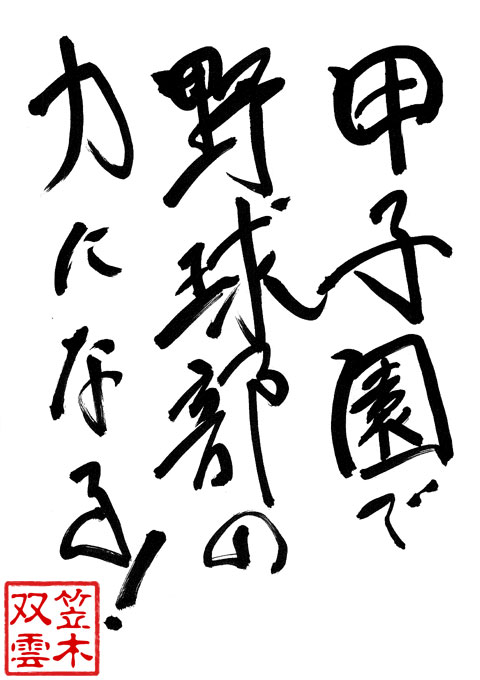 甲子園で
野球部の
力になる!
笠木
双雲